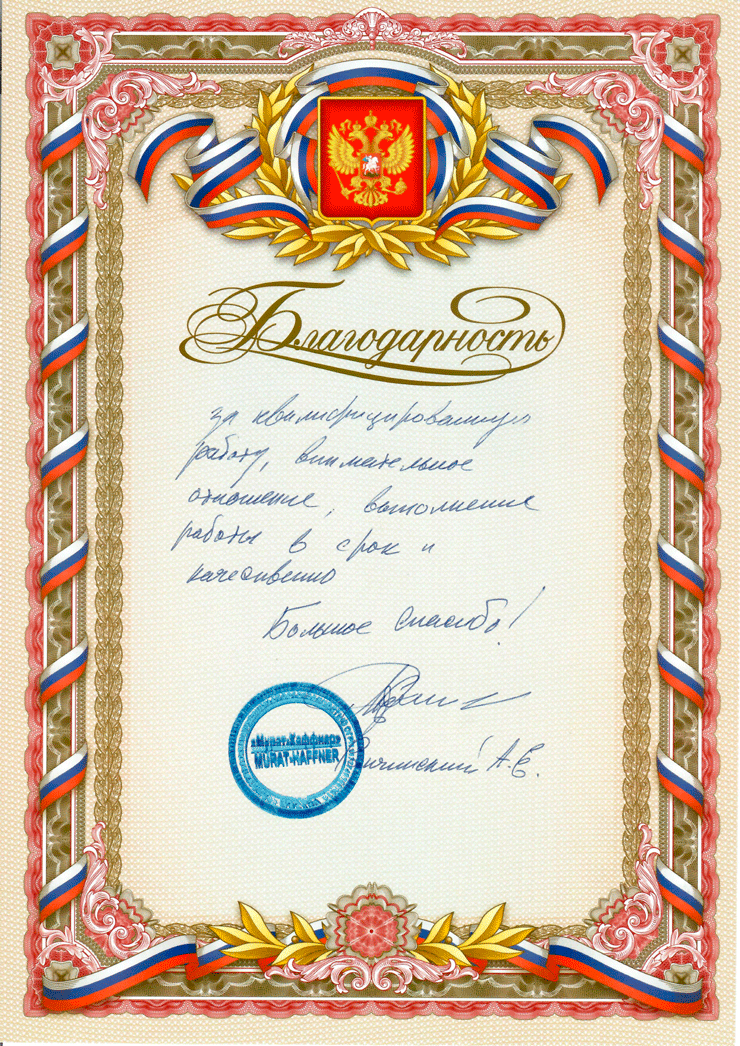 Благодарность
за квалифицированную
работу, внимательное
отношение, выполнение
работы в срок и
качественно
Большое спасибо!
«Мурат-Каффнер»
MURAT-KAFFNER
А.Е.